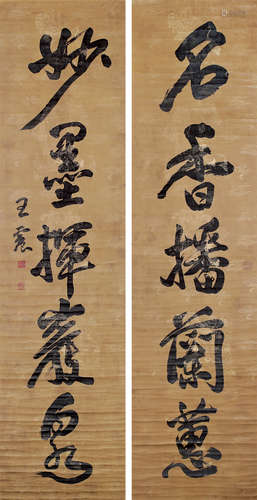 名香播蘭蕙
妙墨揮巖泉
王震